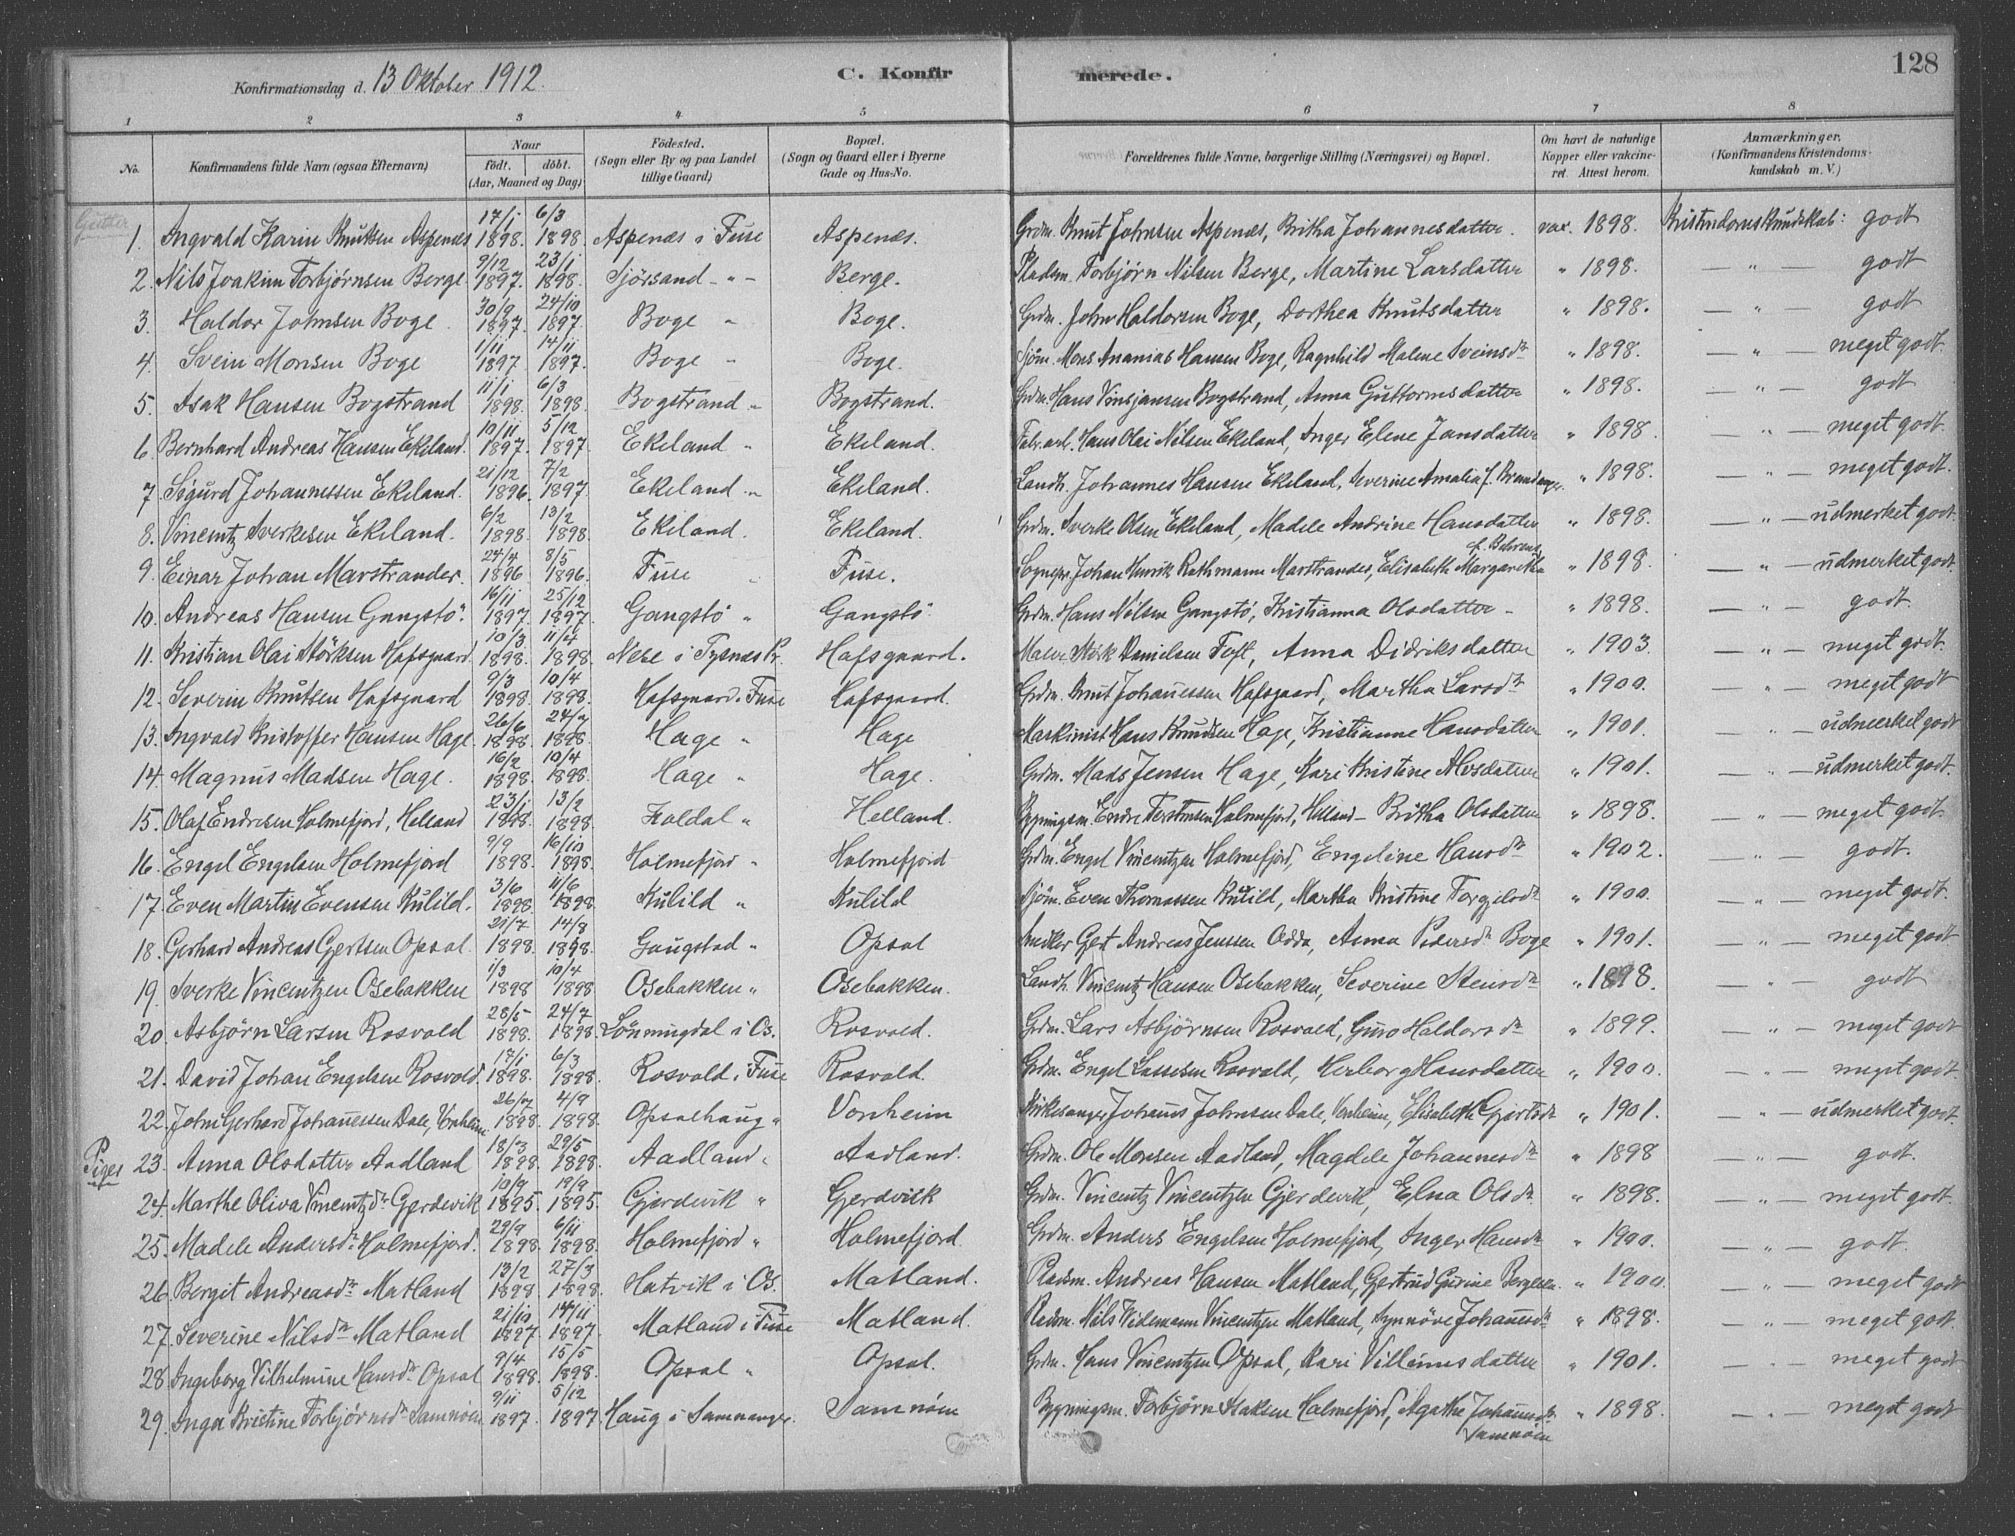 Konfirmationsdag d. 13 Oktober 1912. C. Konfirmerede. 128
1 2 3 4 5 6 7 8
No. Konfirmandens fulde Navn (ogsaa Efternavn) Naar født. døbt. (Aar, Maaned og Dag) Fødested. (Sogn eller By og paa Landet tillige Gaard) Bopæl. (Sogn og Gaard eller i Byerne Gade og Hus-No. Forældrenes fulde Navne, borgerlige Stilling (Næringsvei) og Bopæl. Om havt de naturlige Kopper eller vakcineret. Attest herom. Anmærkninger. (Konfirmandens Kristendomskundskab m. V.)
Gutter
1. Ingvald Karin Knutsen Aspenæs 17/1 1898. 6/3 1898. Aspenæs i Fuse Aspenæs. Grdm. Knut Johnsen Aspenæs, Britha Johannesdatter. vax. 1898. Kristendomskundskab: godt
2. Nils Joakim Torbjørnsen Berge 9/12 1897. 23/1 1898. Sjørsand - " - Berge. Pladsm. Torbjørn Nilsen Berge, Martine Larsdatter " 1898. — " — godt
3. Haldor Johnsen Boge 30/9 1897. 24/10 1897. Boge " Boge. Grdm. John Haldorsen Boge, Dorthea Knutsdatter " 1898. — " — godt
4. Svein Monsen Boge 1/11 1897 14/11 1897. Boge " Boge. Sjøm. Mons Ananias Hansen Boge, Ragnhild Malene Sveinsdtr " 1898. — " — meget godt.
5. Isak Hansen Bogstrand 11/1 1898. 6/3 1898. Bogstrand " Bogstrand. Grdm. Hans Vinsjansen Bogstrand, Anna Guttormsdatter " 1898. — " — godt
6. Bernhard Andreas Hansen Ekeland. 10/11 1897. 5/12 1897. Ekeland " Ekeland. Fabr.arb. Hans Olai Nilsen Ekeland, Inger Elene Jansdatter " 1898. — " — meget godt.
7 Sigurd Johannessen Ekeland. 21/12 1896. 7/2 1897. Ekeland " Ekeland. Landh. Johannes Hansen Ekeland, Severine Amalia f. " 1898. — " — meget godt.
8. Vincentz Sverkesen Ekeland. 6/2 1898. 13/2 1898. Ekeland. Ekeland. Grdm. Sverke Olsen Ekeland, Madele Andrine Hansdatter " 1898. — " — udmerket godt.
9. Einar Johan Marstrander. 24/4 1896 8/5 1896. Fuse " Fuse. Sognepr. Johan Henrik Rathmann Marstrander, Elisabeth Margaretha f. Behrens " 1898. — " — udmerket godt.
10. Andreas Hansen Gangstø. 16/11 1897. 25/12 1897. Gangstø " Gangstø Grdm. Hans Nilsen Gangstø, Kristianna Olsdatter - " 1898. — " — godt.
11. Kristian Olai Størksen Hafsgaard 10/3 1898. 11/4 1898. Nese i Tysnes Pr. Hafsgaard. Maler Størk Danielsen Toft, Anna Didriksdatter " 1903. — " — meget godt.
12. Severin Knutsen Hafsgaard 9/3 1898. 10/4 1898. Hafsgaard i Fuse Hafsgaard. Grdm. Knut Johannessen Hafsgaard, Martha Larsdtr " 1900. — " — meget godt
13. Ingvald Kristoffer Hansen Hage. 26/6 1898. 24/7 1898. Hage " Hage Maskinist Hans Knudsen Hage, Kristianne Hansdatter " 1901. — " — udmerket godt
14. Magnus Madsen Hage. 16/2 1898. 10/4 1898. Hage " Hage. Grdm. Mads Jensen Hage, Kari Kristine datter " 1901. — " — udmerket godt.
15. Olaf Endresen Holmefjord, Helland 23/1 1898. 13/2 1898. " Helland. Bygningsm. Endre Torstensen Holmefjord, Helland - Britha Olsdatter " 1898. — " — meget godt.
16. Engel Engelsen Holmefjord 9/9 1898. 16/10 1898. Holmefjord " Holmefjord Grdm. Engel Vincentzen Holmefjord, Engeline Hansdtr " 1902. — " — godt.
17. Even Martin Evensen Kulild. 3/6 1898. 11/6 1898. Kulild " Kulild Sjøm. Even Thomassen Kulild, Martha Kristine Torgilsdtr " 1900. — " — meget godt.
18. Gerhard Andreas Gjertsen Opsal. 21/7 1898. 14/8 1898. Gaugstad " Opsal Snidker Gert Andreas Jenssen Odda, Anna Pedersdtr Boge " 1901. — " — meget godt
19 Sverke Vincentzen Osebakken 1/3 1898 10/4 1898 Osebakken " Osebakken. Landh. Vincentz Hansen Osebakken, Severine Stensdtr " 1898. — " — godt
20. Asbjørn Larsen Rosvold 28/5 1898. 24/7 1898. Lønningdal i Os. Rosvold. Grdm. Lars Asbjørnsen Rosvold, Guro Haldorsdtr " 1899. — " — meget godt
21. David Johan Engelsen Rosvold. 17/1 1898. 6/3 1898. Rosvold i Fuse Rosvold. Grdm. Engel Lassesen Rosvold, Herborg Hansdatter " 1900. — " — meget godt.
22. John Gerhard Johannessen Dale, Vonheim 26/7 1898. 4/9 1898. Opsalhaug " Vonheim Kirkesanger Johans Johnsen Dale, Vonheim, Elisabeth Gjertsdtr " 1901. — " — udmerket godt
Piger 23. Anna Olsdatter Aadland 18/3 1898. 29/5 1898. Aadland " Aadland. Grdm. Ole Monsen Aadland, Magdele Johannesdtr " 1898 — " — godt.
24. Marthe Oliva Vincentzdtr Gjerdevik 10/9 1895. 19/9 1895. Gjerdevik " Gjerdvik Grdm. Vincentz Vincentzen Gjerdevik, Elna Olsdtr " 1898. — " — meget godt.
25. Madele Andersdtr Holmefjord. 29/9 1898. 6/11 1898. Holmefjord " Holmefjord. Grdm. Anders Engelsen Holmefjord, Inger Hansdtr " 1900. — " — godt.
26. Berget Andreasdtr Matland 13/2 1898 27/3 1898. Hatvik i Os. Matland. Pladsm. Andreas Hansen Matland, Gjertrud Gurine Bergesen. " 1900 — " — meget godt
27. Severine Nilsdtr Matland 21/10 1897 14/11 1897. Matland i Fuse Matland. Pladsm. Nils Videmann Vincentzen Matland, Synnøve Johannesdtr " 1898. — " — meget godt.
28. Ingeborg Vilhelmine Hansdtr Opsal 9/4 1898. 15/5 1898. Opsal " Opsal. Grdm. Hans Vincentzen Opsal, Kari Villumsdatter " 1901. — " — meget godt
29. Inga Kristine Torbjørnsdtr Samnøen 9/11 1897. 5/12 1897. Haug i Samnanger. Samnøen Bygningsm. Torbjørn Isaksen Holmefjord, Agathe Johannesdtr Samnøen " 1898. — " — meget godt